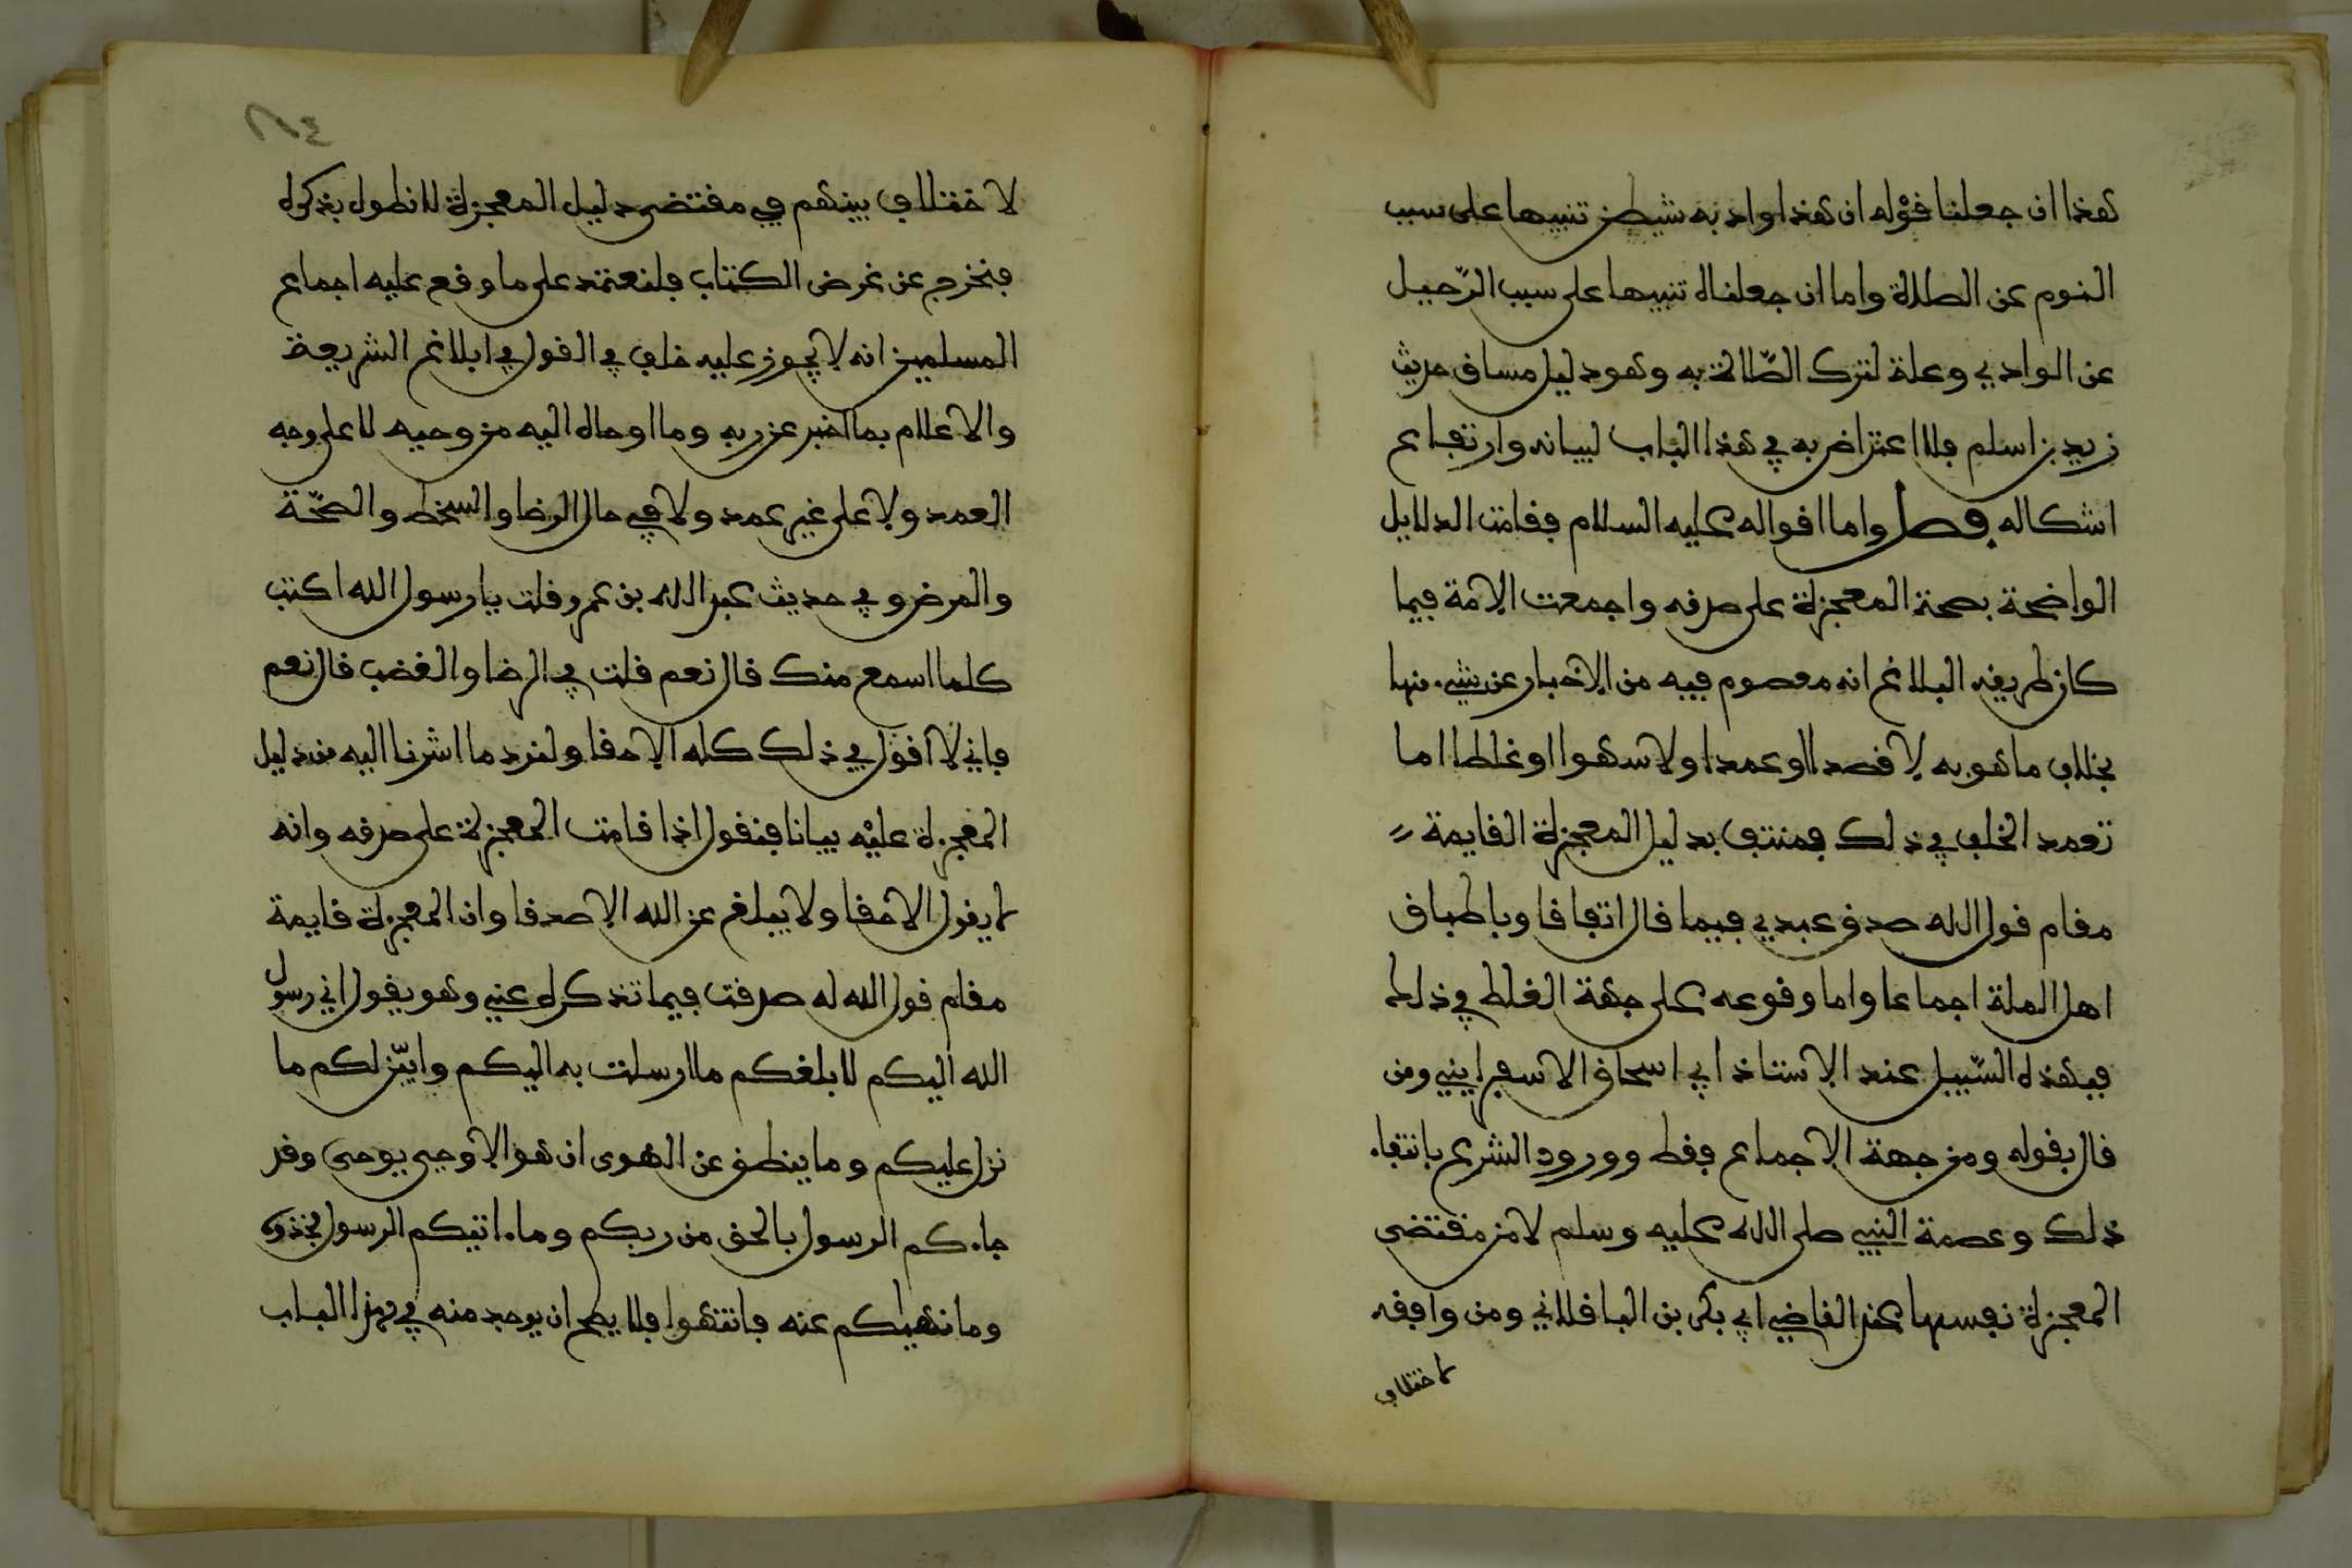 هذا ان جعلنا قوله ان هذا واد به شيطن تنبيها على سبب
النوم عن الصلاة واما ان جعلناه تنبيها على سبب الرّحيل
عن الوادي وعلة لترك الصّلاة به وهو دليل مساق حديث
زيد بن اسلم فلا اعتراض به في هذا الباب لبيانه وارتفاع
اشكاله فصل واما اقواله عليه السلام فقامت الدلايل
الواضحة بصحة المعجزة على صدقه واجمعت الامة فيما
كان طريقه البلاغ انه معصوم فيه من الاخبار عن شيء منها
بخلاف ما هو به لا قصدا او عمدا ولا سهوا او غلطا اما
تعمد الخلف في ذلك فمنتف بدليل المعجزة القايمة
مقام قول الله صدق عبدي فيما قال اتفاقا وباطباق
اهل الملة اجماعا واما وقوعه على جهة الغلط في ذلك
فبهذه السّبيل عند الاستاذ ابي اسحاق الاسفرايني ومن
قال بقوله ومن جهة الاجماع فقط وورود الشرع بانتفاء
ذلك وعصمة النبي صلى الله عليه وسلم لا من مقتضى
المعجزة نفسها عند القاضي ابي بكر بن الباقلاني ومن وافقه
لاختلاف
٢١٤
لاختلاف بينهم في مقتضى دليل المعجزة لا نطول بذكره
فنخرج عن غرض الكتاب فلنعتمد على ما وقع عليه اجماع
المسلمين انه لا يجوز عليه خلف في القول في ابلاغ الشريعة
والاعلام بما اخبر عن ربه وما اوحاه اليه من وحيه لا على وجه
العمد ولا على غير عمد ولا في حال الرضا والسخط والصّحّة
والمرض وفي حديث عبد الله بن عمرو قلت يا رسول الله اكتب
كلما اسمع منك قال نعم قلت في الرضا والغضب قال نعم
فاني لا اقول في ذلك كله الا حقا ولنزد ما اشرنا اليه من دليل
المعجزة عليْه بيانا فنقول اذا قامت المعجزة على صدقه وانه
لا يقول الا حقا ولا يبلغ عن الله الا صدقا وان المعجزة قايمة
مقام قول الله له صدقت فيما تذكره عني وهو يقول اني رسول
الله اليكم لابلغكم ما ارسلت به اليكم وابيّن لكم ما
نزل عليكم وما ينطق عن الهوى ان هو الا وحي يوحى وقد
جاءكم الرسول بالحق من ربكم وما ءاتيكم الرسول فخذوه
وما نهيكم عنه فانتهوا فلا يصح ان يوجد منه في هذا الباب